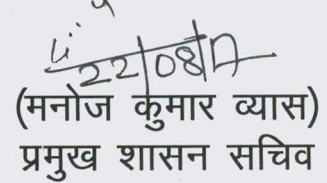 22/08/17
(मनोज कुमार व्यास)
प्रमुख शासन सचिव